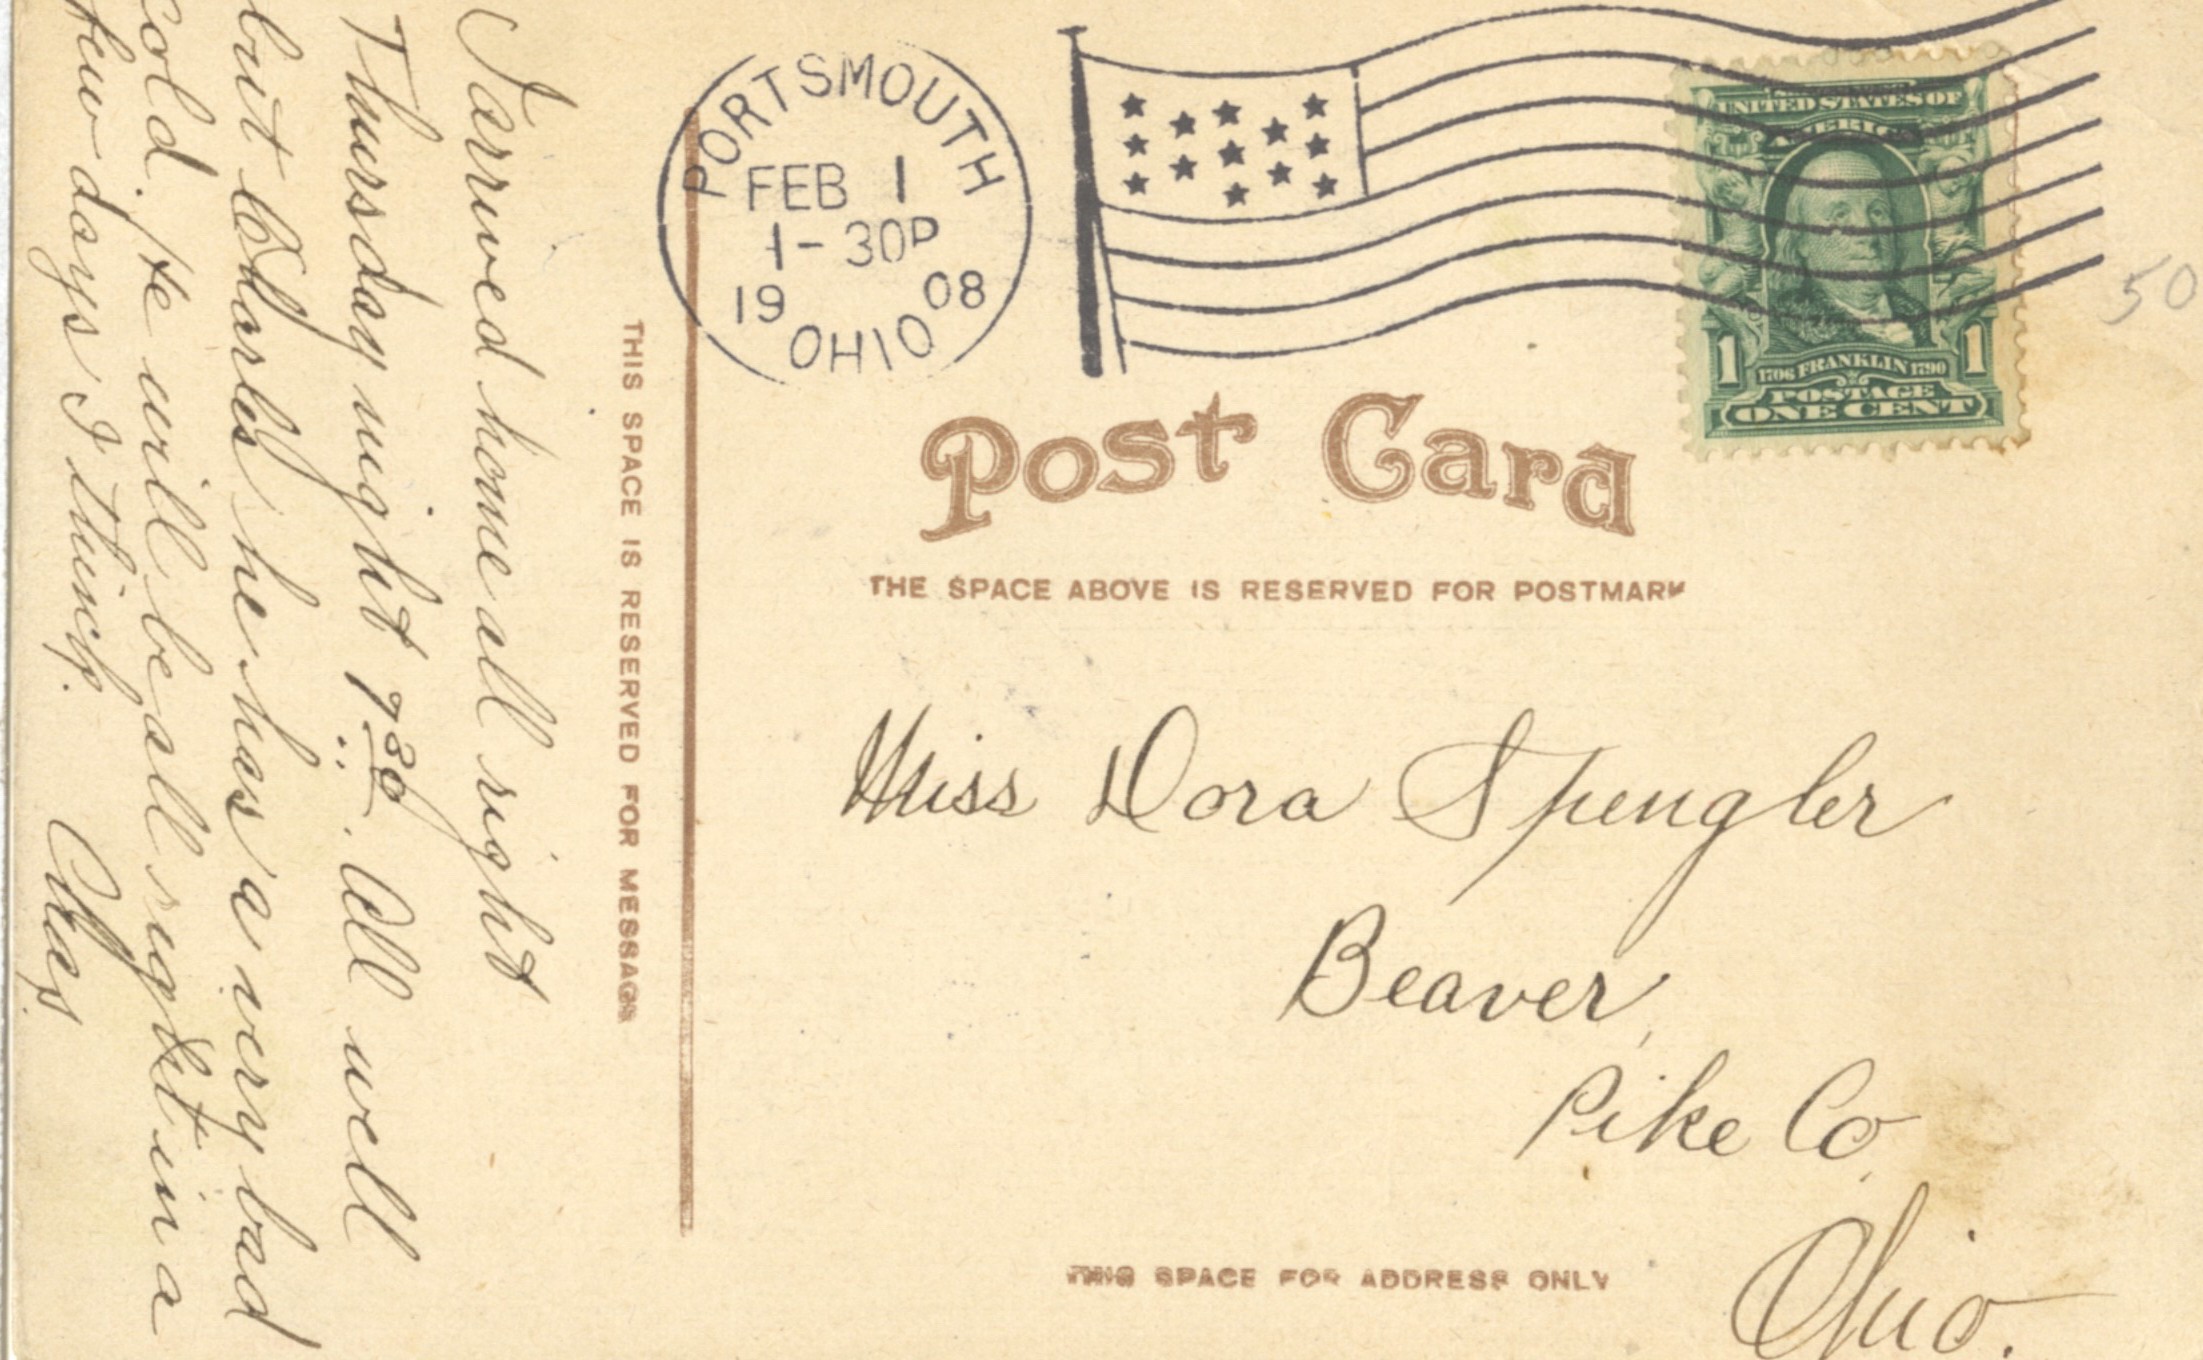 PORTSMOUTH
FEB 1
1-30P
19 08
OHIO
UNITED STATES OF
AMERICA
1706 FRANKLIN 1790
POSTAGE
1 ONE CENT 1
50
Post Card
THE SPACE ABOVE IS RESERVED FOR POSTMARK
THIS SPACE IS RESERVED FOR MESSAGE
I arrived home all right
Thursday night 7 30. All well
but Charles he has a very bad
cold. He will be all right in a
few days I think.
Chas.
Miss Dora Spengler
Beaver,
Pike Co
Ohio.
THIS SPACE FOR ADDRESS ONLY